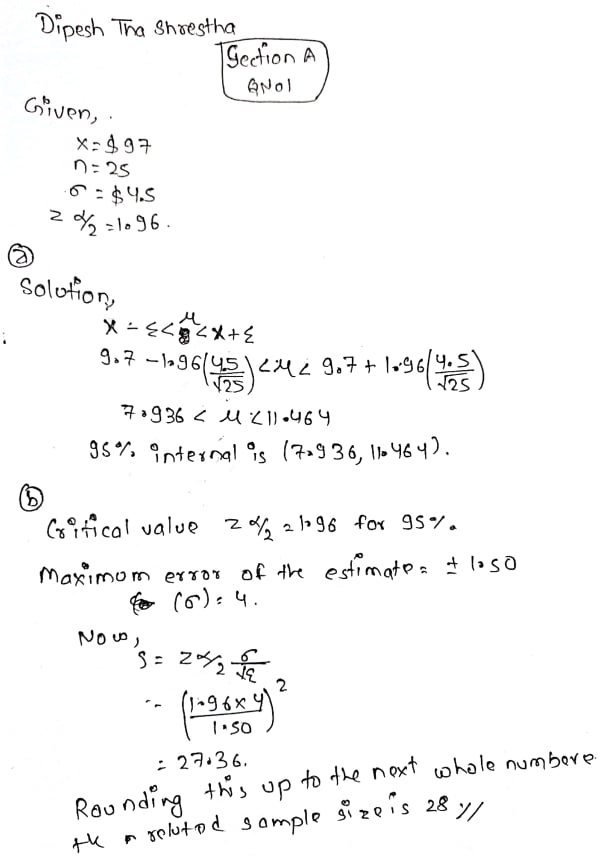 Dipesh Tha Shrestha
Section A
QN01
Given,
x = $97
n = 25
σ = $4.5
z α/2 = 1.96.
(a)
Solution,
x - ε < μ < x + ε
9.7 - 1.96(4.5/√25) < μ < 9.7 + 1.96(4.5/√25)
7.936 < μ < 11.464
95% internal is (7.936, 11.464).
(b)
Critical value z α/2 = 1.96 for 95%.
Maximum error of the estimate = ± 1.50
(σ) = 4.
Now,
S = z α/2 σ/√ε
(1.96 x 4 / 1.50)²
= 27.36.
Rounding this up to the next whole numbere
sample size is 28 //